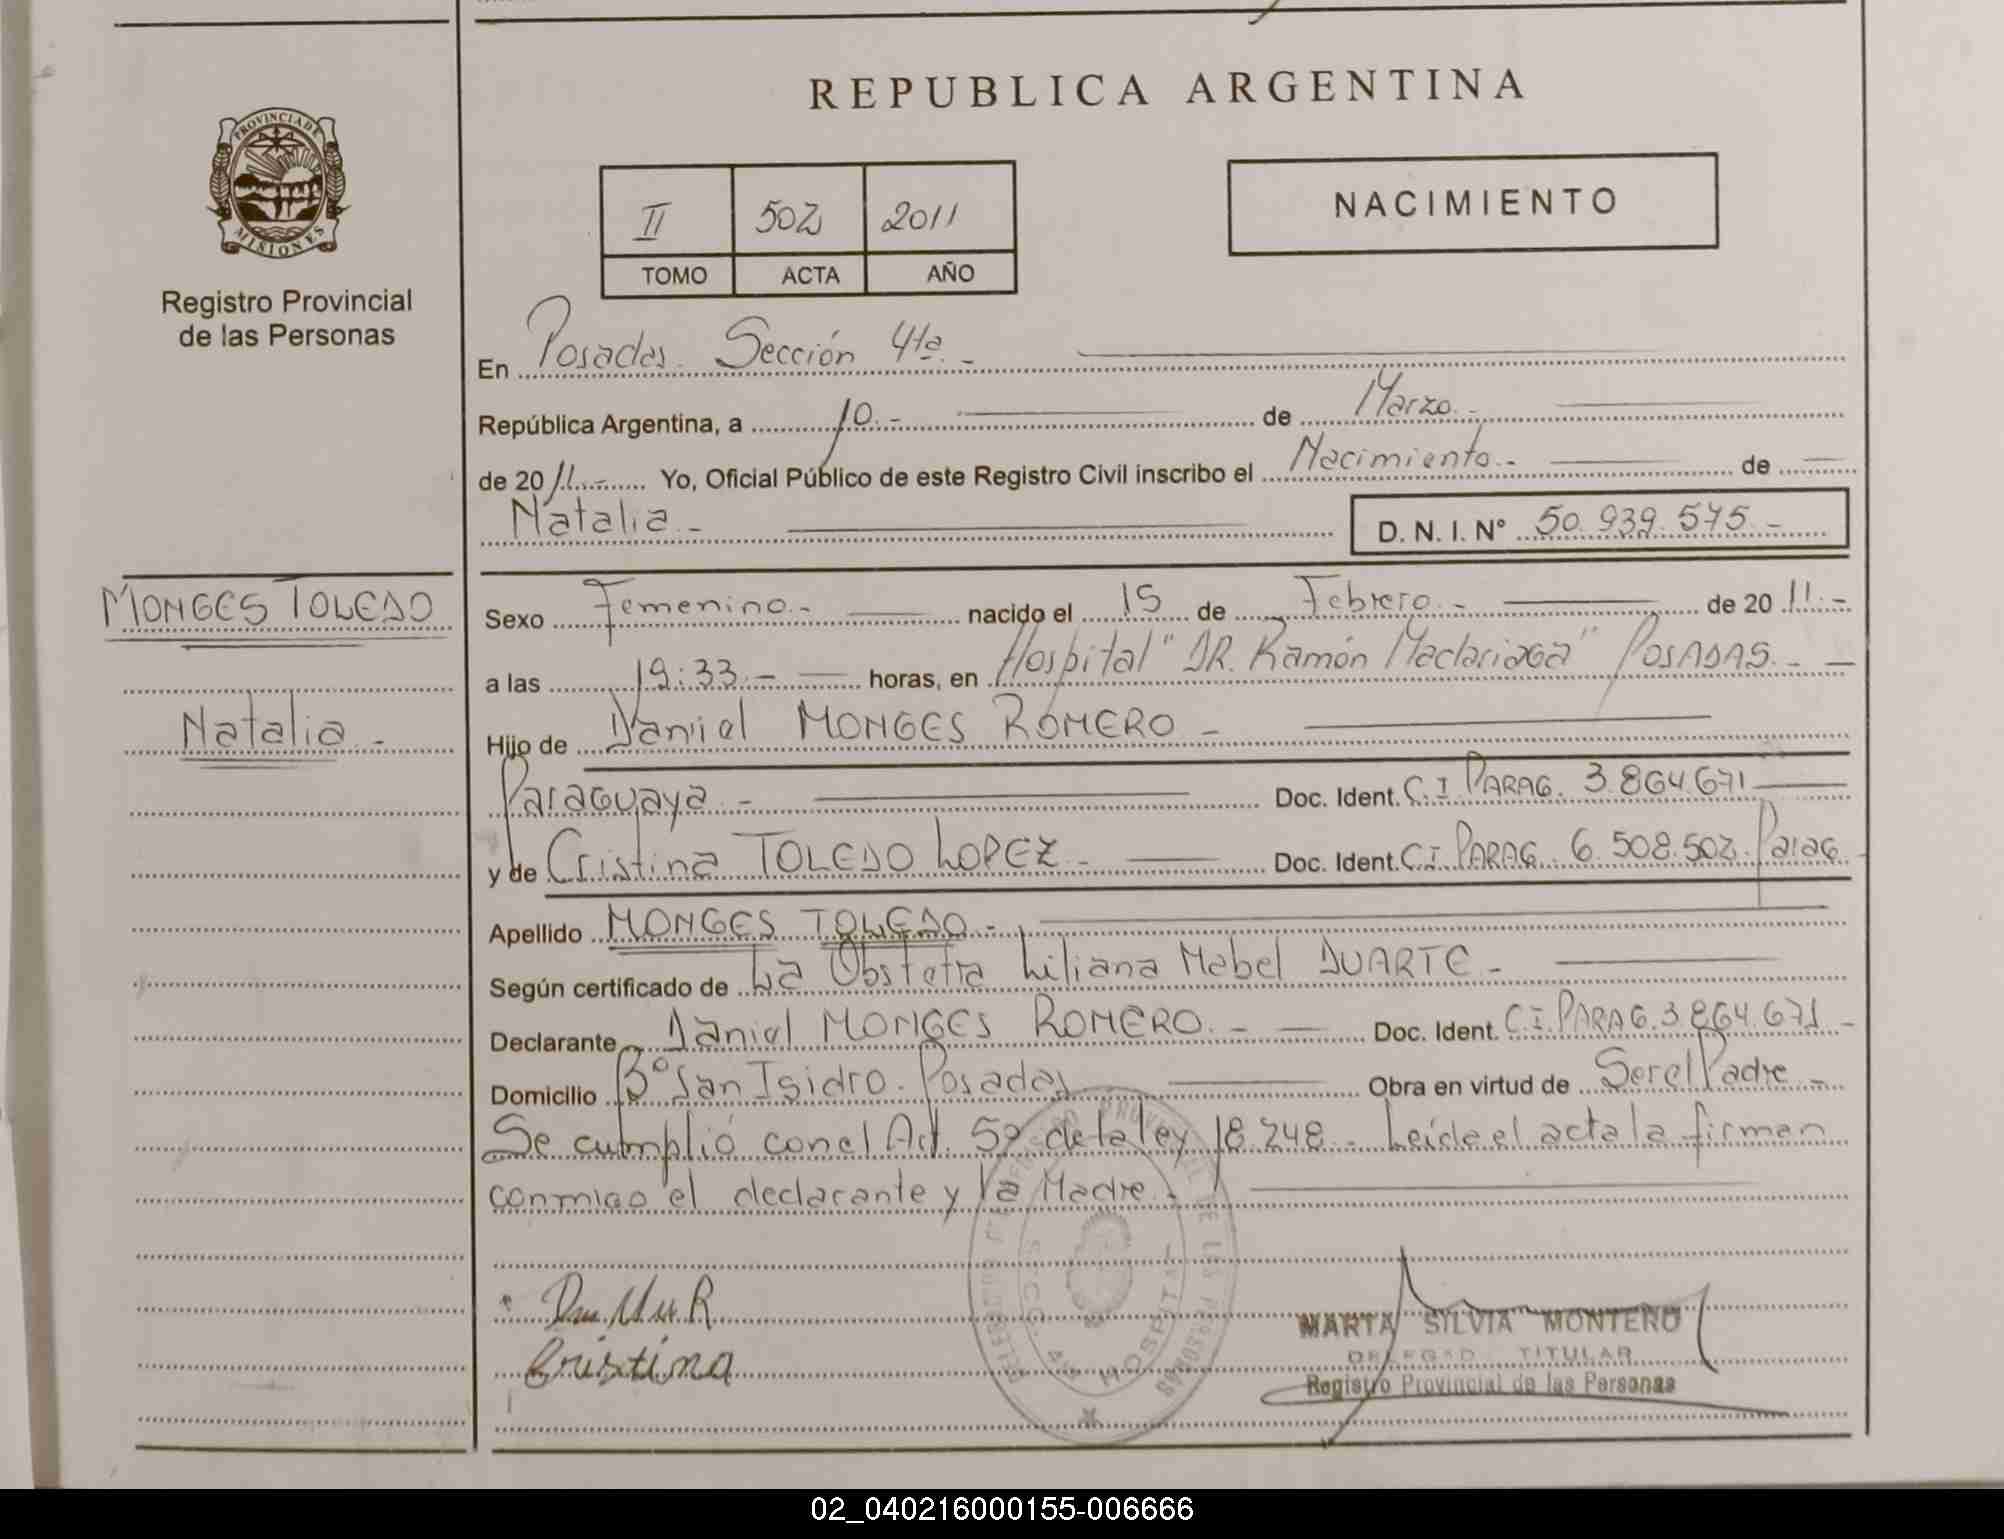 REPUBLICA ARGENTINA
PROVINCIA DE
MISIONES
Registro Provincial
de las Personas
II 502 2011
TOMO ACTA AÑO
NACIMIENTO
En Posadas. Sección 4ta.-
República Argentina, a 10.- de Marzo.-
de 2011.- Yo, Oficial Público de este Registro Civil inscribo el Nacimiento.- de
Natalia.- D. N. I. N° 50.939.575.-
MONGES TOLEDO
Natalia.-
Sexo Femenino.- nacido el 15 de Febrero.- de 2011.-
a las 19:33.- horas, en Hospital "DR. Ramón Madariaga" POSADAS.-
Hijo de Daniel MONGES ROMERO.-
Paraguaya.- Doc. Ident. C.I PARAG. 3.864.671
y de Cristina TOLEDO LOPEZ.- Doc. Ident. C.I. PARAG. 6.508.502. Parag.
Apellido MONGES TOLEDO.-
Según certificado de La Obstetra Liliana Mabel DUARTE.-
Declarante Daniel MONGES ROMERO.- Doc. Ident. C.I. PARAG. 3.864.671-
Domicilio B° San Isidro. Posadas Obra en virtud de Ser el Padre.-
Se cumplió con el Art. 5° de la ley 18.248.- Leída el acta la firman
conmigo el declarante y la Madre.-
Cristina
MARTA SILVIA MONTERO
DELEGAD TITULAR
Registro Provincial de las Personas
02_040216000155-006666